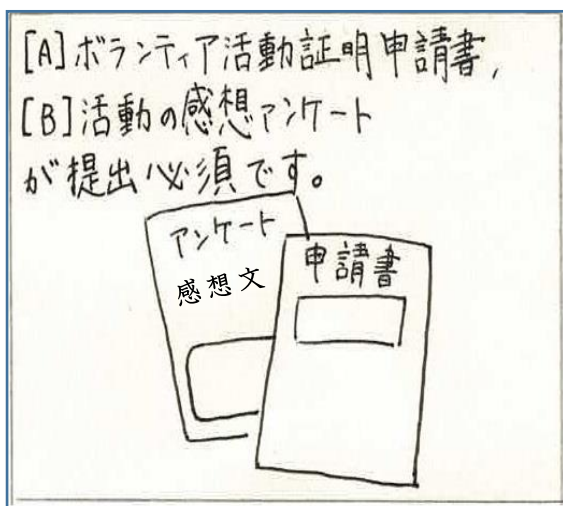 [A]ボランティア活動証明申請書,
[B]活動の感想アンケート
が提出必須です。
アンケート
感想文
申請書